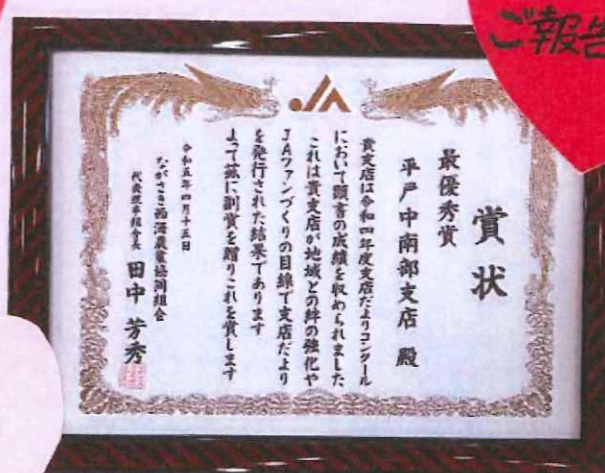 ご報告
JA
賞状
最優秀賞
平戸中南部支店 殿
貴支店は令和四年度支店だよりコンクール
において頭書の成績を収められました
これは貴支店が地域との絆の強化や
JAファンづくりの目線で支店だより
を発行された結果であります
よって茲に副賞を贈りこれを賞します
令和五年四月十五日
ながさき西海農業協同組合
代表理事組合長 田中 芳秀